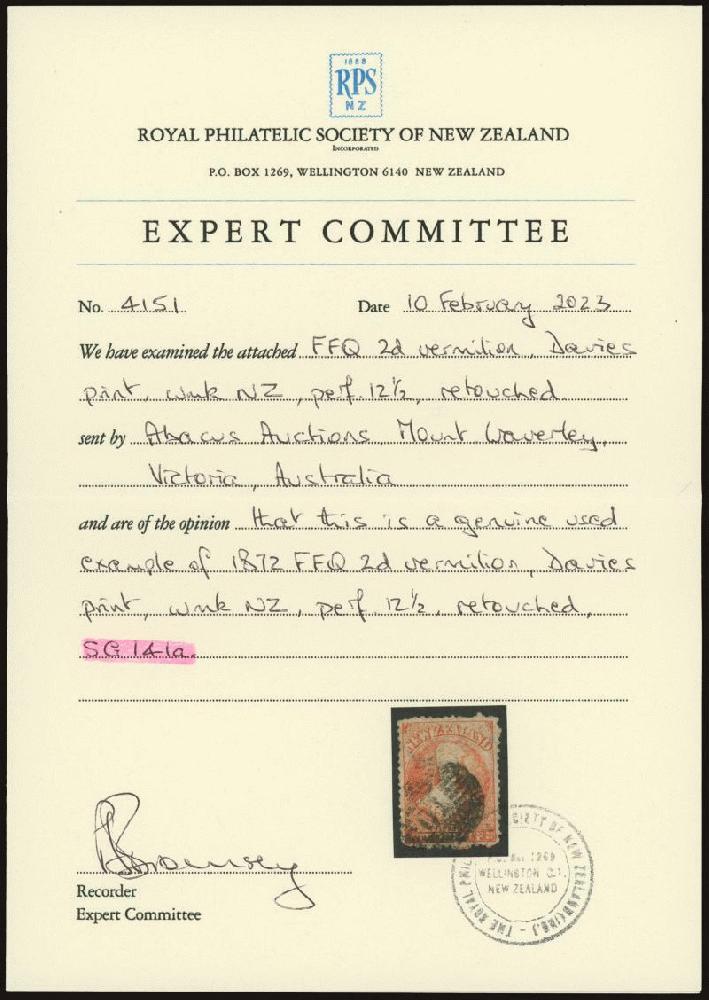 1888
RPS
NZ
ROYAL PHILATELIC SOCIETY OF NEW ZEALAND
INCORPORATED
P.O. BOX 1269, WELLINGTON 6140 NEW ZEALAND
EXPERT COMMITTEE
No. 4151 Date 10 February 2023
We have examined the attached FFQ 2d vermilion, Davies
print, wmk NZ, perf 12½, retouched
sent by Abacus Auctions Mount Waverley,
Victoria, Australia
and are of the opinion that this is a genuine used
example of 1872 FFQ 2d vermilion, Davies
print, wmk NZ, perf 12½, retouched,
SG 141a.
NEW ZEALAND
Recorder
Expert Committee
THE ROYAL PHIL SOCIETY OF NEW ZEALAND (INC.)
P.O. Box 1269
WELLINGTON C.1.
NEW ZEALAND